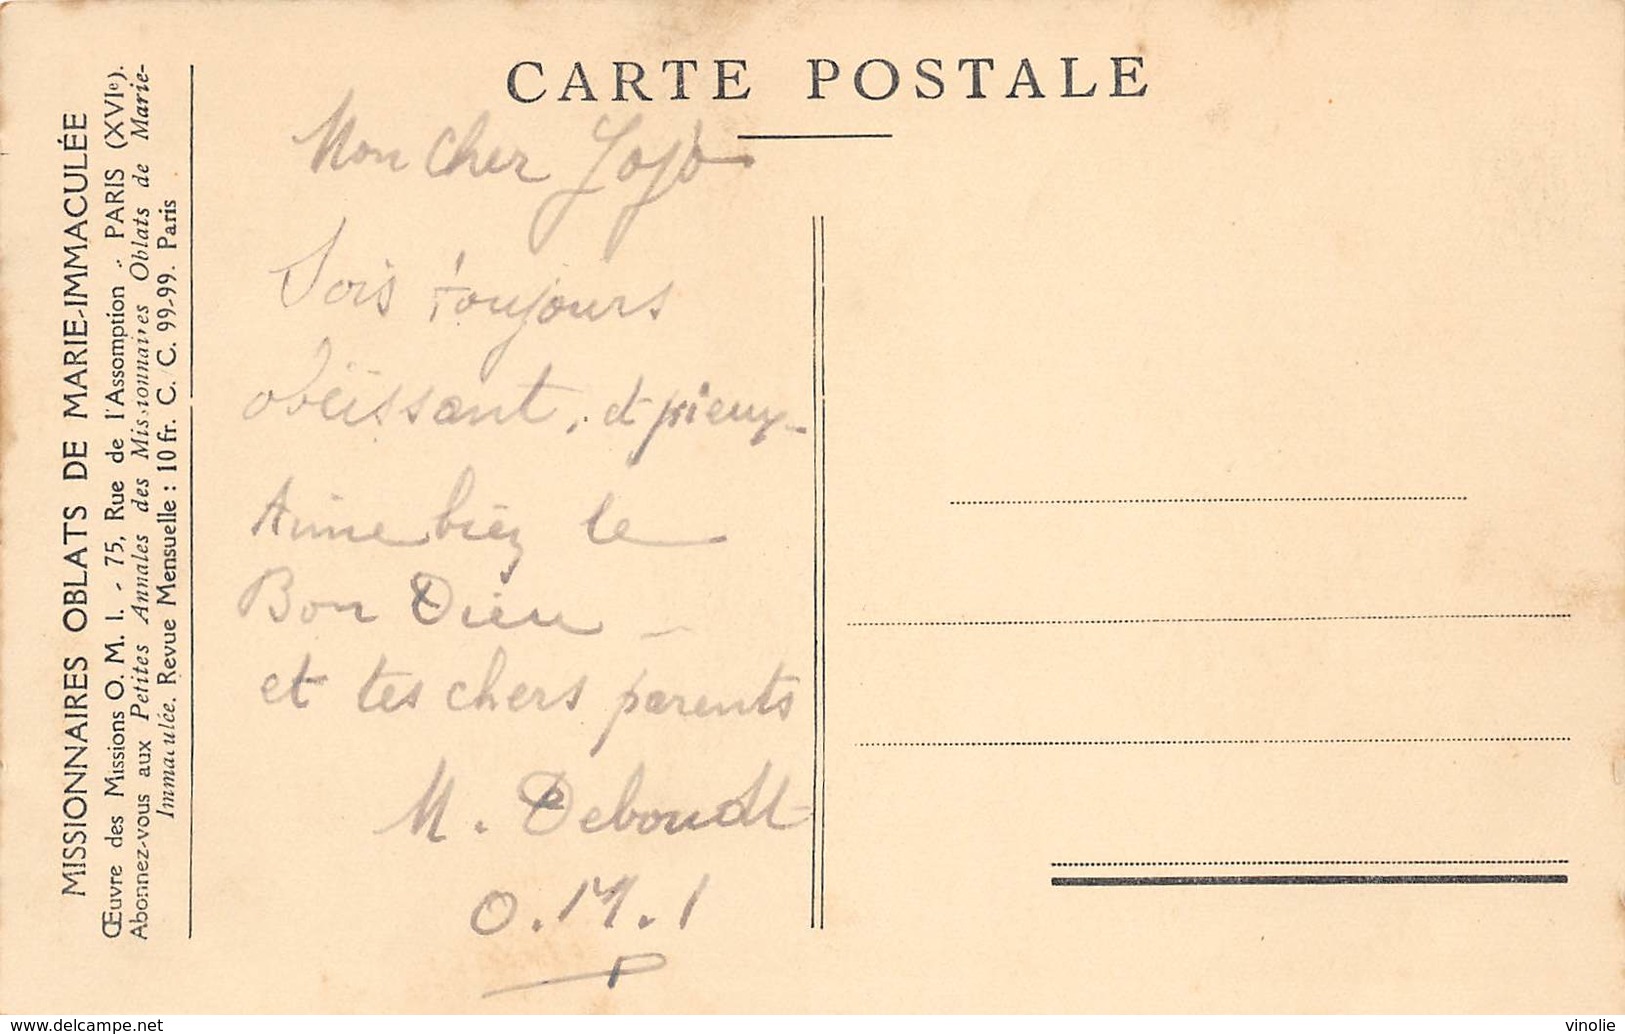 MISSIONNAIRES OBLATS DE MARIE-IMMACULÉE
Œuvre des Missions O. M. I. - 75, Rue de l'Assomption - PARIS (XVIe).
Abonnez-vous aux Petites Annales des Missionnaires Oblats de Marie-
Immaculée. Revue Mensuelle : 10 fr. C. C. 99-99. Paris
CARTE POSTALE
Mon cher Jojo
Sois toujours
obéissant, et pieux -
Aime bien le
Bon Dieu -
et tes chers parents
M. Deboudt
O. M. I
www.delcampe.net
vinolie